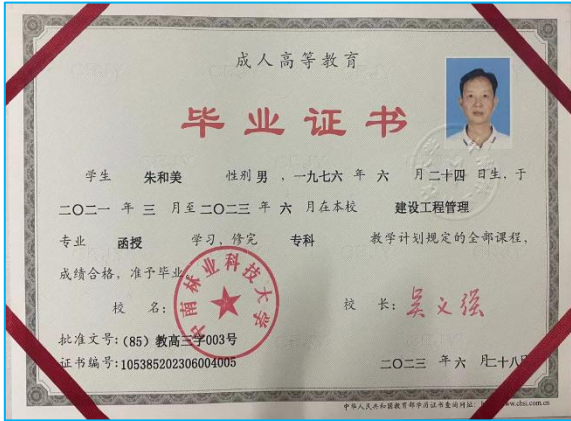 成人高等教育
毕业证书
学生 朱和美 性别 男 ，一九七六 年 六 月 二十四 日生，于
二〇二一 年 三 月至 二〇二三 年 六 月在本校 建设工程管理
专业 函授 学习，修完 专科 教学计划规定的全部课程，
成绩合格，准予毕业
校 名： 校 长：吴义强
中南林业科技大学
批准文号：(85) 教高三字003号
证书编号：105385202306004005 二〇二三 年 六 月二十八日
中华人民共和国教育部学历证书查询网址： www.chsi.com.cn